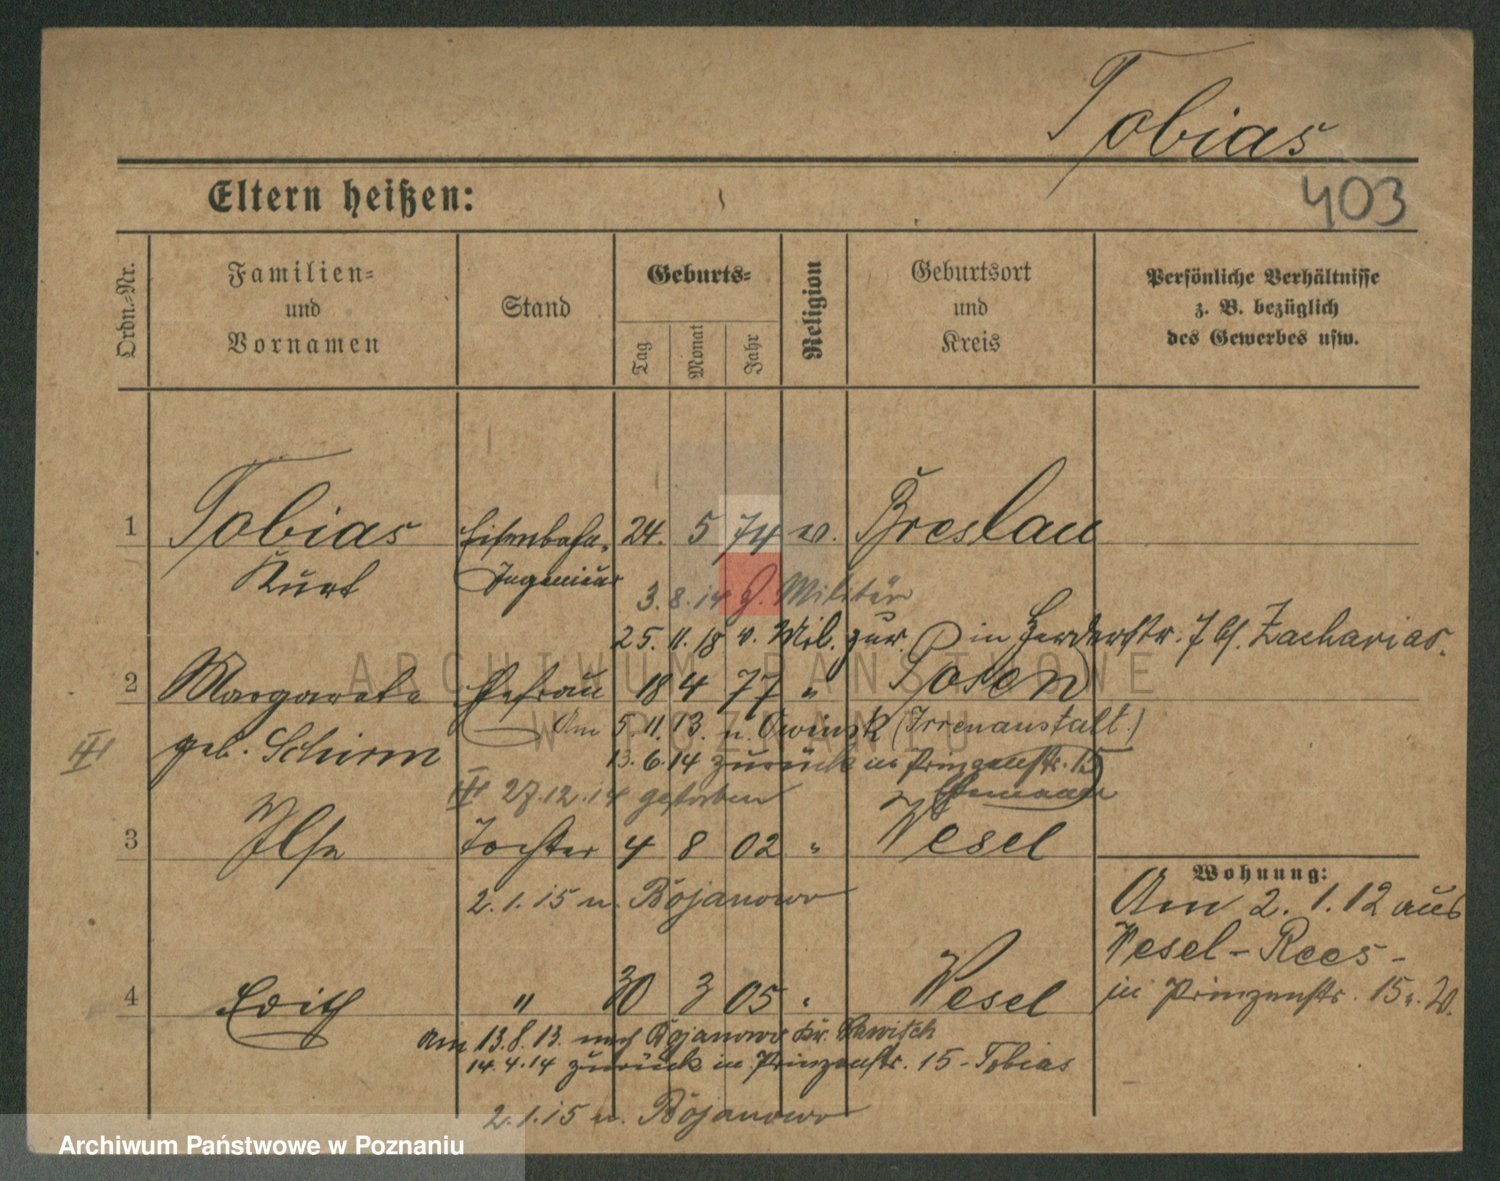 Tobias
Eltern heißen:
403
Ordn.-Nr.
Familien-
und
Vornamen
Stand
Geburts-
Tag
Monat
Jahr
Religion
Geburtsort
und
Kreis
Persönliche Verhältnisse
z. B. bezüglich
des Gewerbes usw.
1 Tobias Eisenbahn- 24. 5 74 Breslau
Kurt Ingenieur
3.8.14 Militär
25.11.18 v. Mil. zur. in Herderstr. 7 bei Zacharias.
2 Margarete Ehefrau 18 4 77 " Posen
geb. Schirm Am 5.11.13. n. Owinsk (Irrenanstalt.)
III 13.6.14 zurück in Prinzenstr. 15
Ehemann
III 27.12.14 gestorben
3 Ilse Tochter 4 8 02 " Wesel
2.1.15 n. Bojanowo
Wohnung:
Am 2.1.12 aus
Wesel - Rees -
in Prinzenstr. 15
4 Edith " 30 3 05 " Wesel
Am 13.8.13. nach Bojanowo Kr. Rawitsch
14.4.14 zurück in Prinzenstr. 15 - Tobias
2.1.15 n. Bojanowo
ARCHIWUM PAŃSTWOWE
W POZNANIU
Archiwum Państwowe w Poznaniu